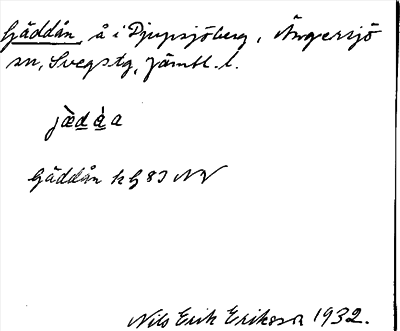 Gäddån, å i Djupsjöberg, Ängersjö
sn, Svegs tg, Jämtl. l.
jæ̀dåa
Gäddån kg 83 NV
Nils Erik Eriksson 1932.